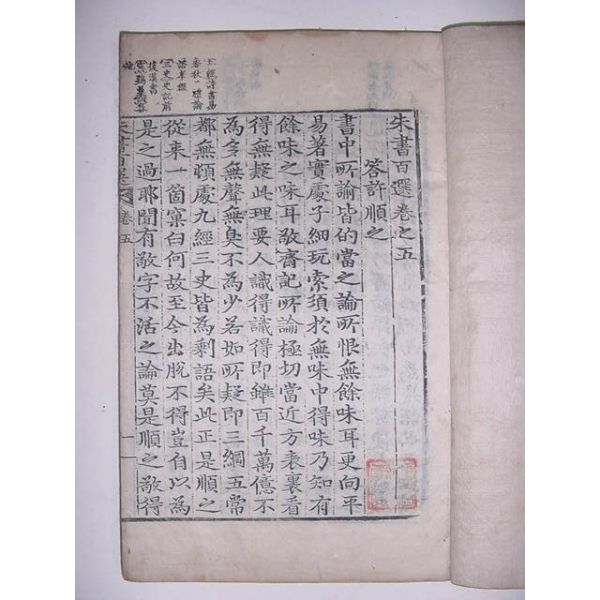 朱書百選卷之五
答許順之
書中所諭皆的當之論所恨無餘味耳更向平
易著實處子細玩索須於無味中得味乃知有
餘味之味耳敬齋記所論極切當近方表裏看
得無疑此理要人識得識得即雖百千萬億不
為多無聲無臭不為少若如所疑即三綱五常
都無頓處九經三史皆為剩語矣此正是順之
從來一箇窠臼何故至今出脫不得豈自以為
是之過耶聞有敬字不活之論莫是順之敬得
朱書百選
卷五
一
五經詩書易
春秋禮論
語孝經
三史史記前
後漢書